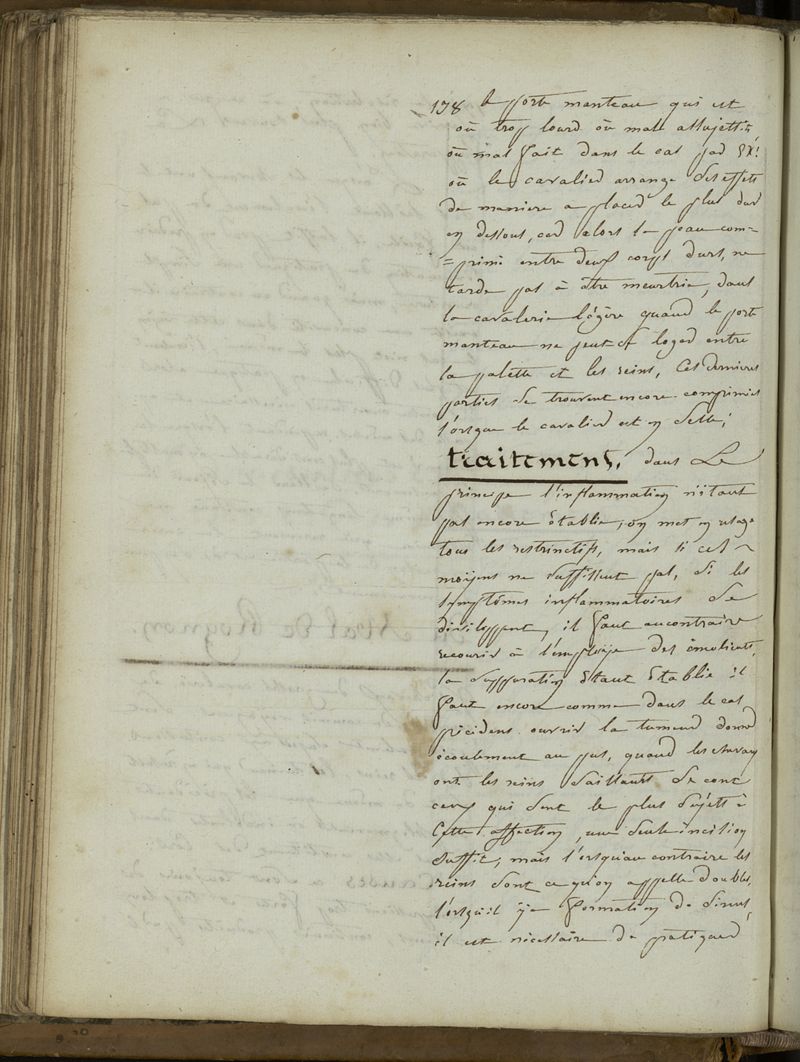 178 le porte manteau qui est
ou trop lourd ou male assujettit
ou mal fait dans le cas par Ex!
ou le cavalier arrange ses effets
de maniere a placer le plus dur
en dessous, car alors la peau com=
=primé entre deux corps durs, ne
tarde pas à être meurtrie, dans
la cavalerie légère quand le porte
manteau ne peut se loger entre
la palette et les reins, Ces dernieres
parties se trouvent encore comprimées
l'orsque le cavalier est en selle;
traitement, dans Le
principe l'inflammation n'etant
pas encore établie, on met en usage
tous les restrinctifs, mais si ces
moyens ne suffissent pas, si les
symptômes inflammatoires se
diveloppent, il faut aucontraire
recourir à l'emploje des émolients,
la suppuration étant établie il
faut encore comme dans le cas
précident ouvrir la tumeur donner
écoulement au pus, quand les chevaux
ont les reins saillants se cont
ceux qui sont le plus sujets à
Cette affection, une seule incision
suffit, mais l'orsqu'au contraire les
reins sont ce qu'on appelle doubles,
l'orsqu'il y a formation de sinus,
il est nécessaire de pratiquer
Mal de Rognon.